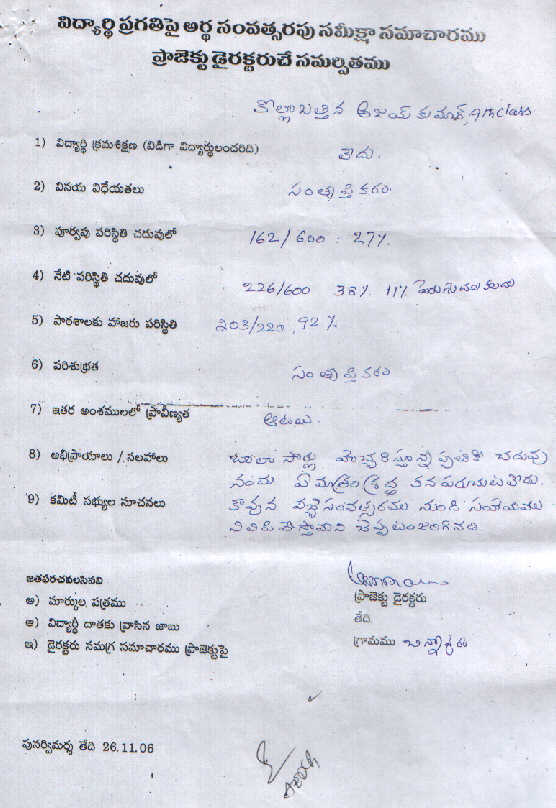 విద్యార్థి ప్రగతిపై అర్థ సంవత్సరపు సమీక్షా సమాచారము
ప్రాజెక్టు డైరక్టరుచే సమర్పితము
కొల్లాబత్తిన అజయ్ కుమార్, 9th class
1) విద్యార్థి క్రమశిక్షణ (విడిగా విద్యార్థులందరిది) లేదు.
2) వినయ విధేయతలు సంతృప్తికరం
3) పూర్వపు పరిస్థితి చదువులో 162/600 : 27%.
4) నేటి పరిస్థితి చదువులో 226/600 38% 11%
5) పాఠశాలకు హాజరు పరిస్థితి 203/220, 92%
6) పరిశుభ్రత సంతృప్తికరం
7) ఇతర అంశములలో ప్రావీణ్యత ఆటలు.
8) అభిప్రాయాలు / సలహాలు చాలా సార్లు హెచ్చరిస్తూన్నప్పటికి చదువు
నందు ఏ మాత్రం శ్రద్ధ కనపరుచుటలేదు.
9) కమిటీ సభ్యుల సూచనలు కావున వచ్చే సంవత్సరము నుండి సహాయము
చెప్పటం జరిగినది
జతపరచవలసినవి
అ) మార్కుల పత్రము
ఆ) విద్యార్థి దాతకు వ్రాసిన జాబు
ఇ) డైరక్టరు సమగ్ర సమాచారము ప్రాజెక్టుపై
ప్రాజెక్టు డైరక్టరు
తేది
గ్రామము
పునర్విమర్శ తేది 26.11.06